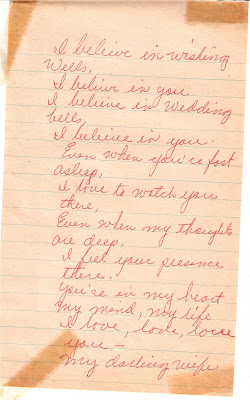 I believe in wishing
Wells,
I believe in you
I believe in Wedding
bells,
I believe in you.
Even when you're fast
asleep,
I love to watch you
there,
Even when my thoughts
are deep,
I feel your presence
there.
You're in my heart
my mind, my life
I love, love, love
you—
My darling wife